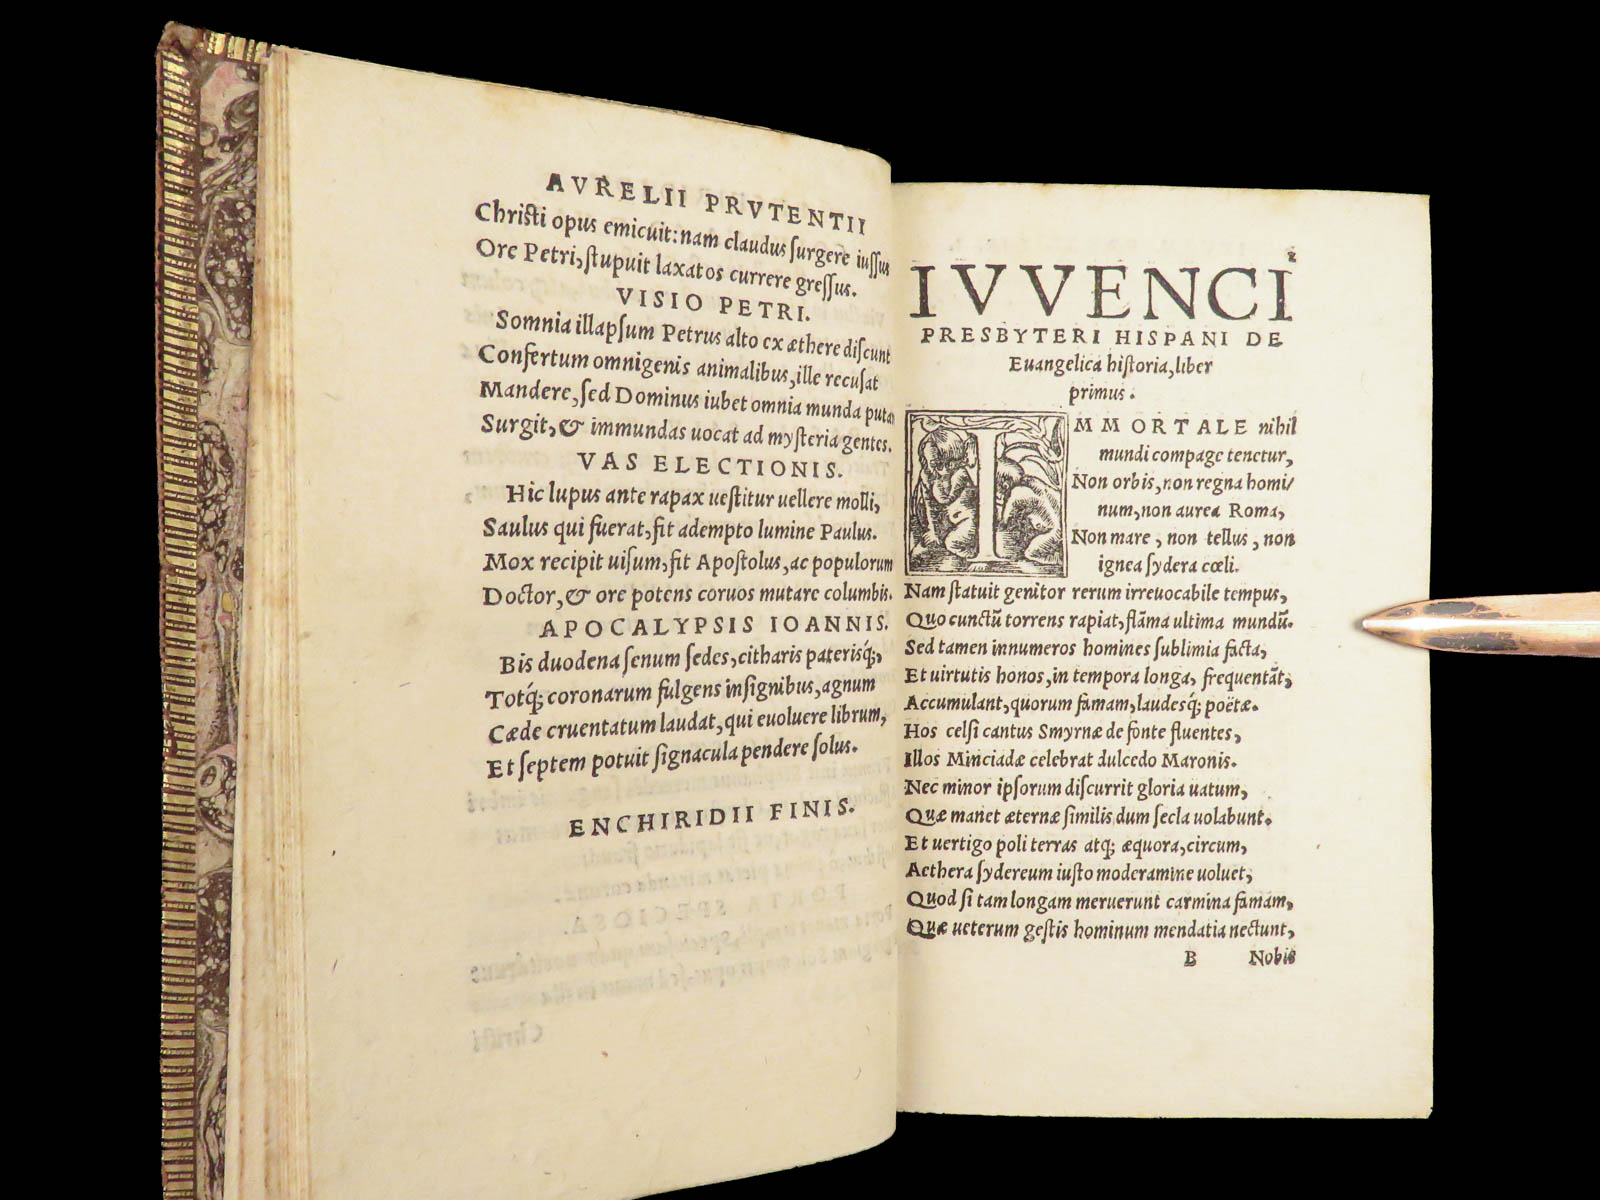 AVRELII PRVTENTII
Chriſti opus emicuit: nam claudus ſurgere iuſſus
Ore Petri, ſtupuit laxatos currere greſſus.
VISIO PETRI.
Somnia illapſum Petrus alto ex æthere diſcunt
Confertum omnigenis animalibus, ille recuſat
Mandere, ſed Dominus iubet omnia munda puta
Surgit, & immundas uocat ad myſteria gentes.
VAS ELECTIONIS.
Hic lupus ante rapax ueſtitur uellere molli,
Saulus qui fuerat, fit adempto lumine Paulus.
Mox recipit uiſum, fit Apoſtolus, ac populorum
Doctor, & ore potens coruos mutare columbis.
APOCALYPSIS IOANNIS.
Bis duodena ſenum ſedes, citharis paterisq́;,
Totq́; coronarum fulgens inſignibus, agnum
Cæde cruentatum laudat, qui euoluere librum,
Et ſeptem potuit ſignacula pendere ſolus.
ENCHIRIDII FINIS.
IVVENCI
PRESBYTERI HISPANI DE
Euangelica hiſtoria, liber
primus.
IMMORTALE nihil
mundi compage tenetur,
Non orbis, non regna homi/
num, non aurea Roma,
Non mare, non tellus, non
ignea ſydera cœli.
Nam ſtatuit genitor rerum irreuocabile tempus,
Quo cunctũ torrens rapiat, flãma ultima mundũ.
Sed tamen innumeros homines ſublimia facta,
Et uirtutis honos, in tempora longa, frequentãt,
Accumulant, quorum famam, laudesq́; poëtæ.
Hos celſi cantus Smyrnæ de fonte fluentes,
Illos Minciadæ celebrat dulcedo Maronis.
Nec minor ipſorum diſcurrit gloria uatum,
Quæ manet æternæ ſimilis dum ſecla uolabunt.
Et uertigo poli terras atq; æquora, circum,
Aethera ſydereum iuſto moderamine uoluet,
Quod ſi tam longam meruerunt carmina famam,
Quæ ueterum geſtis hominum mendatia nectunt,
B Nobis